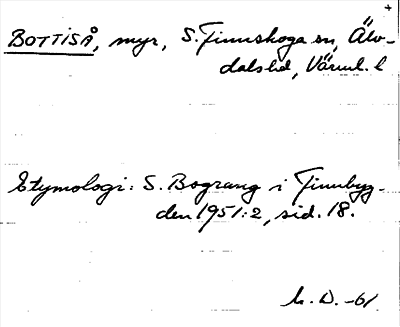 BOTTISÅ, myr, S. Finnskoga sn, Älv-
dals hd, Värml. l
Etymologi: S. Bograng i Finnbyg-
den 1951:2, sid. 18.
h. D. -61